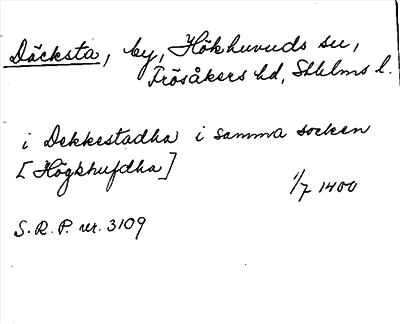 Däcksta, by, Hökhuvuds sn,
Frösåkers hd, Sthlms l.
i Dekkestadha i samma socken
[Högkhufdha]
1/7 1400
S.R.P. nr. 3109